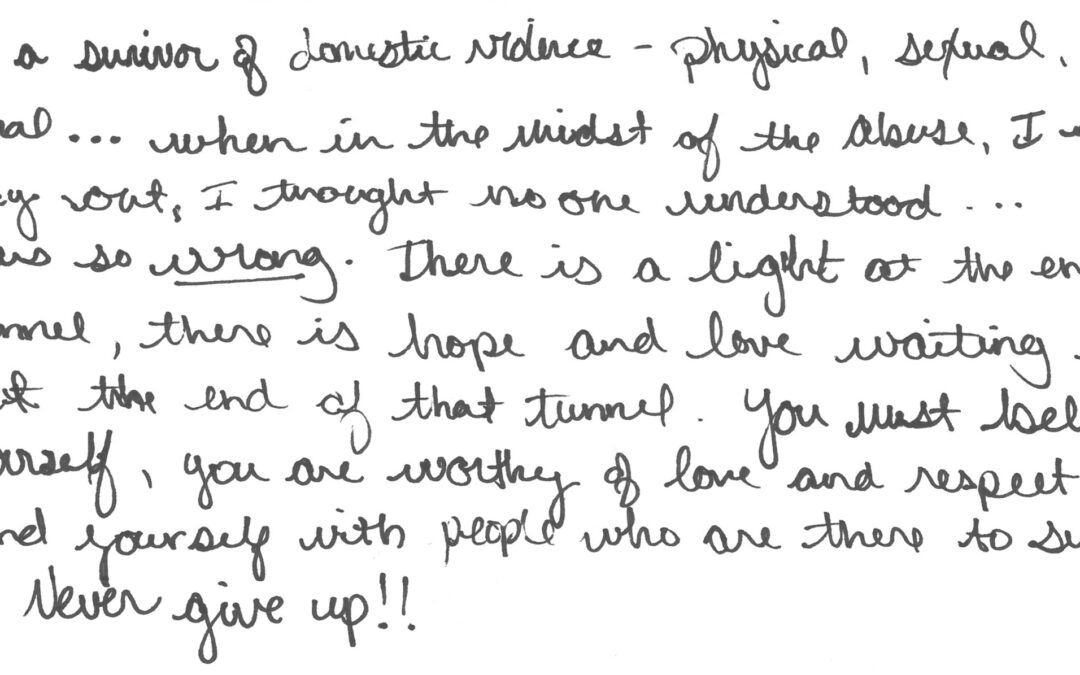 a survivor of domestic violence - physical, sexual,
nal... when in the midst of the abuse, I
y out, I thought no one understood...
as so wrong. There is a light at the en
nnel, there is hope and love waiting
at the end of that tunnel. You must bel
ourself, you are worthy of love and respect
nd yourself with people who are there to su
Never give up!!